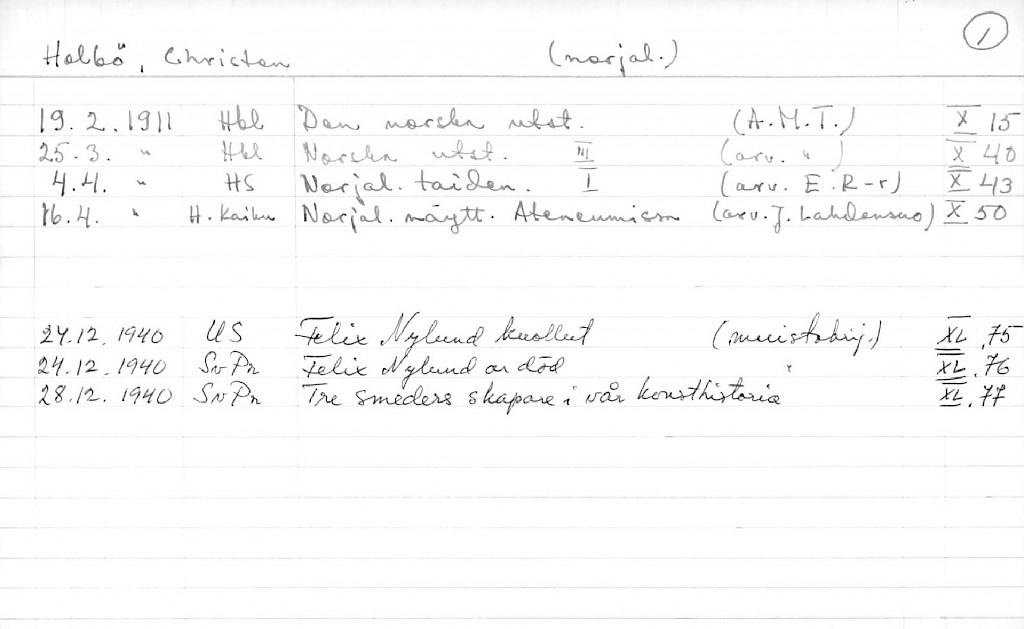 1
Holbö, Christen (norjal.)
19.2.1911 Hbl Den norska utst. (A.M.T.) X 15
25.3. " Hbl Norska utst. III (arv. " ) X 40
4.4. " HS Norjal. taiden. I (arv. E.R-r) X 43
16.4. " H. Kaiku Norjal. näytt. Ateneumissa (arv. J. Lahdensuo) X 50
24.12.1940 US Felix Nylund kuollut (muistokirj.) XL,75
24.12.1940 SvPr Felix Nylund är död " XL,76
28.12.1940 SvPr Tre smeders skapare i vår konsthistoria XL,77